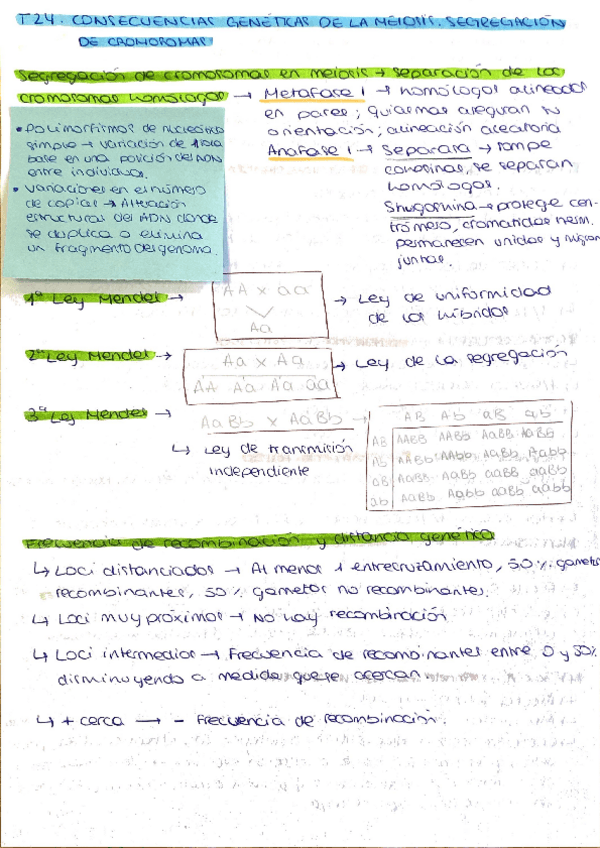 T24. CONSECUENCIAS GENÉTICAS DE LA MEIOSIS. SEGREGACIÓN
DE CROMOSOMAS
Segregación de cromosomas en meiosis → separación de los
cromosomas homólogos → Metafase I → homólogos alineados
en pares; quiasmas aseguran su
orientación; alineación aleatoria
Anafase I → Separasa → rompe
cohesinas, se separan
homólogos.
Shugoshina → protege cen-
trómero, cromátidas herm.
permanecen unidas y migran
juntas.
• Polimorfismos de nucleótido
simple → variación de 1 sola
base en una posición del ADN
entre individuos.
• Variaciones en el número
de copias → Alteración
estructural del ADN donde
se duplica o elimina
un fragmento del genoma.
1ª Ley Mendel → AA x aa → Ley de uniformidad
Aa de los híbridos
2ª Ley Mendel → Aa x Aa → Ley de la segregación
AA Aa Aa aa
3ª Ley Mendel → AaBb x AaBb →
↳ Ley de transmisión
independiente
AB Ab aB ab
AB AABB AABb AaBB AaBb
Ab AABb AAbb AaBb Aabb
aB AaBB AaBb aaBB aaBb
ab AaBb Aabb aaBb aabb
Frecuencia de recombinación y distancia genética
↳ Loci distanciados → Al menos 1 entrecruzamiento, 50% gametos
recombinantes, 50% gametos no recombinantes.
↳ Loci muy próximos → No hay recombinación
↳ Loci intermedios → Frecuencia de recombinantes entre 0 y 50%
disminuyendo a medida que se acercan
↳ + cerca → - Frecuencia de recombinación.